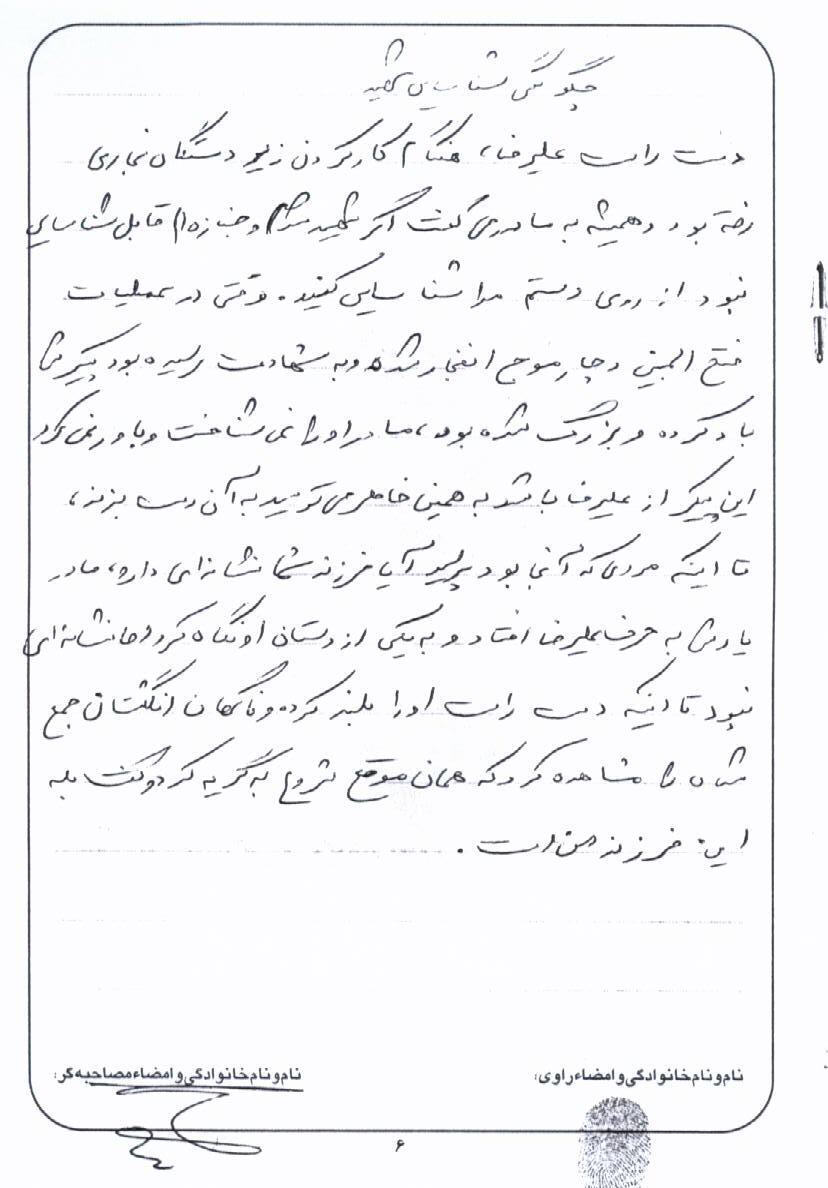 چگونگی شناسایی شهید
دست راست علیرضا، هنگام کار کردن زیر دستگاه نجاری
رفته بود و همیشه به مادرش گفت اگر شهید شدم و جنازه‌ام قابل شناسایی
نبود از روی دستم مرا شناسایی کنید. وقتی در عملیات
فتح المبین دچار موج انفجار شده و به شهادت رسیده بود پیکرش
باد کرده و بزرگ شده بود، مادر او را نمی شناخت و باور نمی کرد
این پیکر از علیرضا باشد به همین خاطر می ترسید به آن دست بزند،
تا اینکه مردی که آنجا بود پرسید آیا فرزند شما نشانه‌ای دارد، مادر
یادش به حرف علیرضا افتاد و به یکی از دستان او نگاه کرد اما نشانه‌ای
نبود تا اینکه دست راست او را بلند کرده و ناگهان انگشتان جمع
شده را مشاهده کرد که همان موقع شروع به گریه کرد و گفت بله
این فرزند من است.
نام و نام خانوادگی و امضاء راوی: نام و نام خانوادگی و امضاء مصاحبه گر:
۶